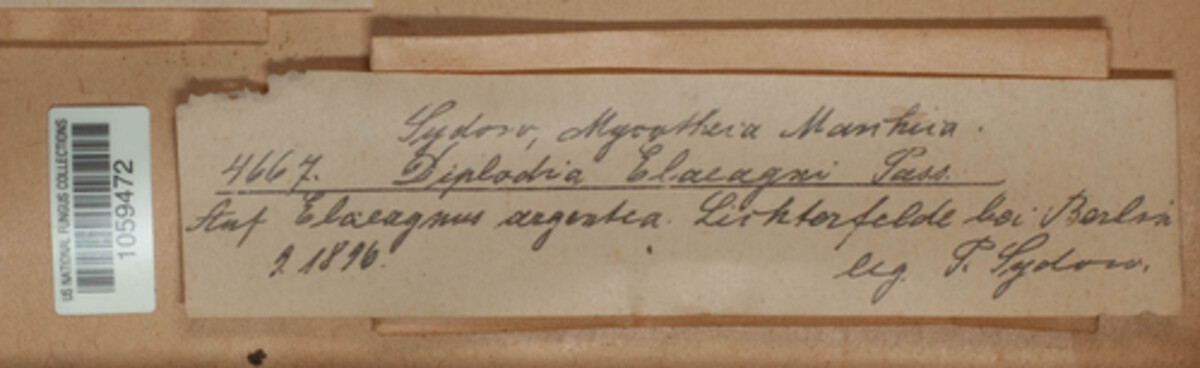 US NATIONAL FUNGUS COLLECTIONS
1059472
Sydow, Mycotheca Marchica.
4667. Diplodia Elaeagni Pass.
Auf Elaeagnus argentea. Lichterfelde bei Berlin
9.1896.
leg. P. Sydow.